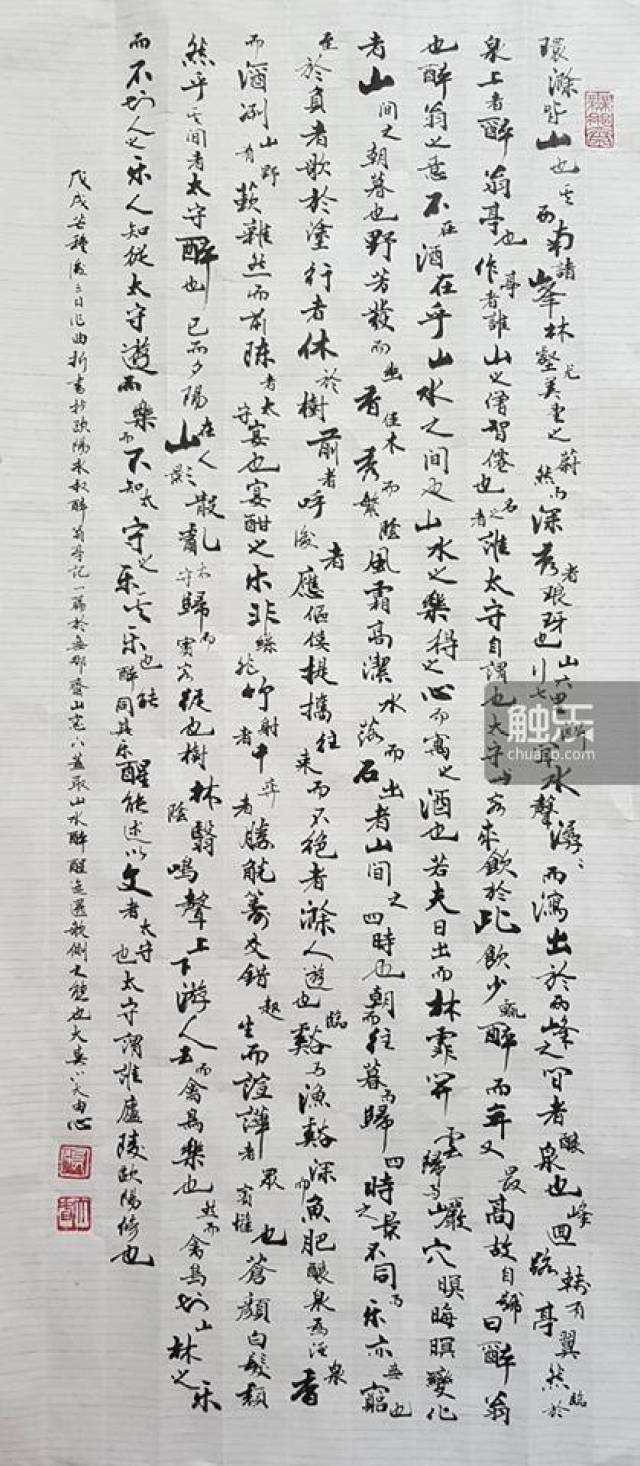 環滁皆山也其西南諸峰林壑尤美望之蔚然而深秀者琅玡也山行六七里漸聞水聲潺潺而瀉出於兩峰之間者釀泉也峰迴路轉有亭翼然臨於
泉上者醉翁亭也作亭者誰山之僧智僊也名之者誰太守自謂也太守與客來飲於此飲少輒醉而年又最高故自號曰醉翁
也醉翁之意不在酒在乎山水之間也山水之樂得之心而寓之酒也若夫日出而林霏開雲歸而巖穴暝晦暝變化
者山間之朝暮也野芳發而幽香佳木秀而繁陰風霜高潔水落而石出者山間之四時也朝而往暮而歸四時之景不同而乐亦無窮也
至於負者歌於塗行者休於樹前者呼後者應傴僂提攜往來而不絕者滁人遊也臨谿而漁谿深而魚肥釀泉為酒泉香
而酒冽山有野蔌雜然而前陳者太守宴也宴酣之乐非絲非竹射者中弈者勝觥籌交錯起坐而諠譁者眾賓懽也蒼顏白髮頹
然乎其間者太守醉也已而夕陽在山人影散亂太守歸而賓客從也樹林陰翳鳴聲上下游人去而禽鳥樂也然而禽鳥知山林之乐
而不知人之乐人知從太守遊而樂而不知太守之乐其乐也醉能同其乐醒能述以文者太守也太守謂誰廬陵歐陽脩也
戊戌芒種後三日作曲折書抄歐陽永叔醉翁亭記一篇於無邪齋山窗下蓋取山水醉醒迤邐欹側之態也
触乐
chuapp.com